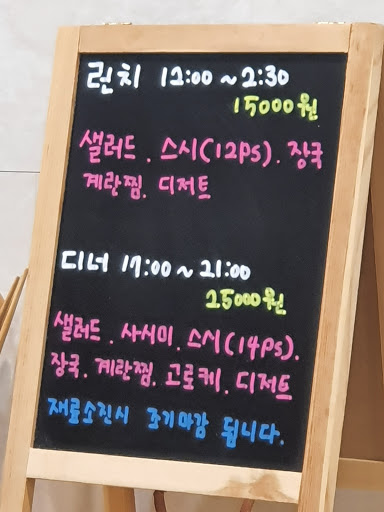 런치 12:00 ~ 2:30
15000원
샐러드 . 스시(12ps) . 장국
계란찜 . 디저트
디너 17:00 ~ 21:00
25000원
샐러드 . 사시미 . 스시(14ps).
장국 . 계란찜 . 고로케 . 디저트
재료소진시 조기마감 됩니다.